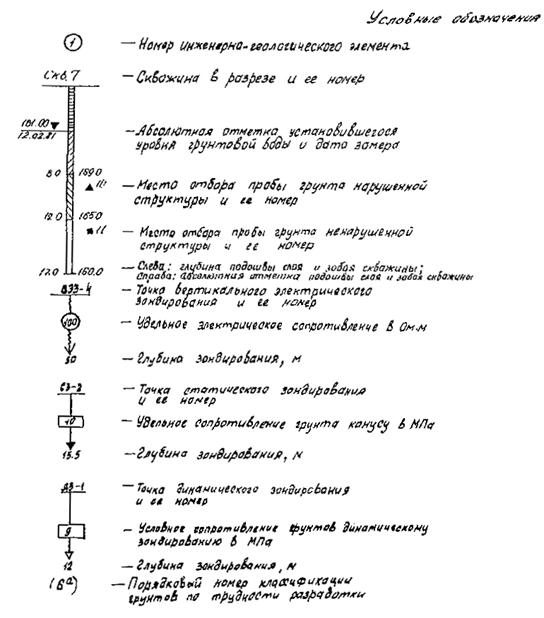 Условные обозначения
1 — Номер инженерно-геологического элемента
Скв. 7 — Скважина в разрезе и ее номер
181.00
12.02.81
— Абсолютная отметка установившегося
уровня грунтовой воды и дата замера
8.0 169.0
— Место отбора пробы грунта нарушенной
структуры и ее номер
12.0 165.0
— Место отбора пробы грунта ненарушенной
структуры и ее номер
17.0 160.0
— Слева: глубина подошвы слоя и забоя скважины;
справа: абсолютная отметка подошвы слоя и забоя скважины
ВЭЗ-4 — Точка вертикального электрического
зондирования и ее номер
100 — Удельное электрическое сопротивление в Ом.м
50 — Глубина зондирования, м
СЗ-2 — Точка статического зондирования
и ее номер
10 — Удельное сопротивление грунта конусу в МПа
15.5 — Глубина зондирования, м
ДЗ-1 — Точка динамического зондирования
и ее номер
9 — Условное сопротивление грунтов динамическому
зондированию в МПа
12 — Глубина зондирования, м
(6а) — Порядковый номер классификации
грунтов по трудности разработки